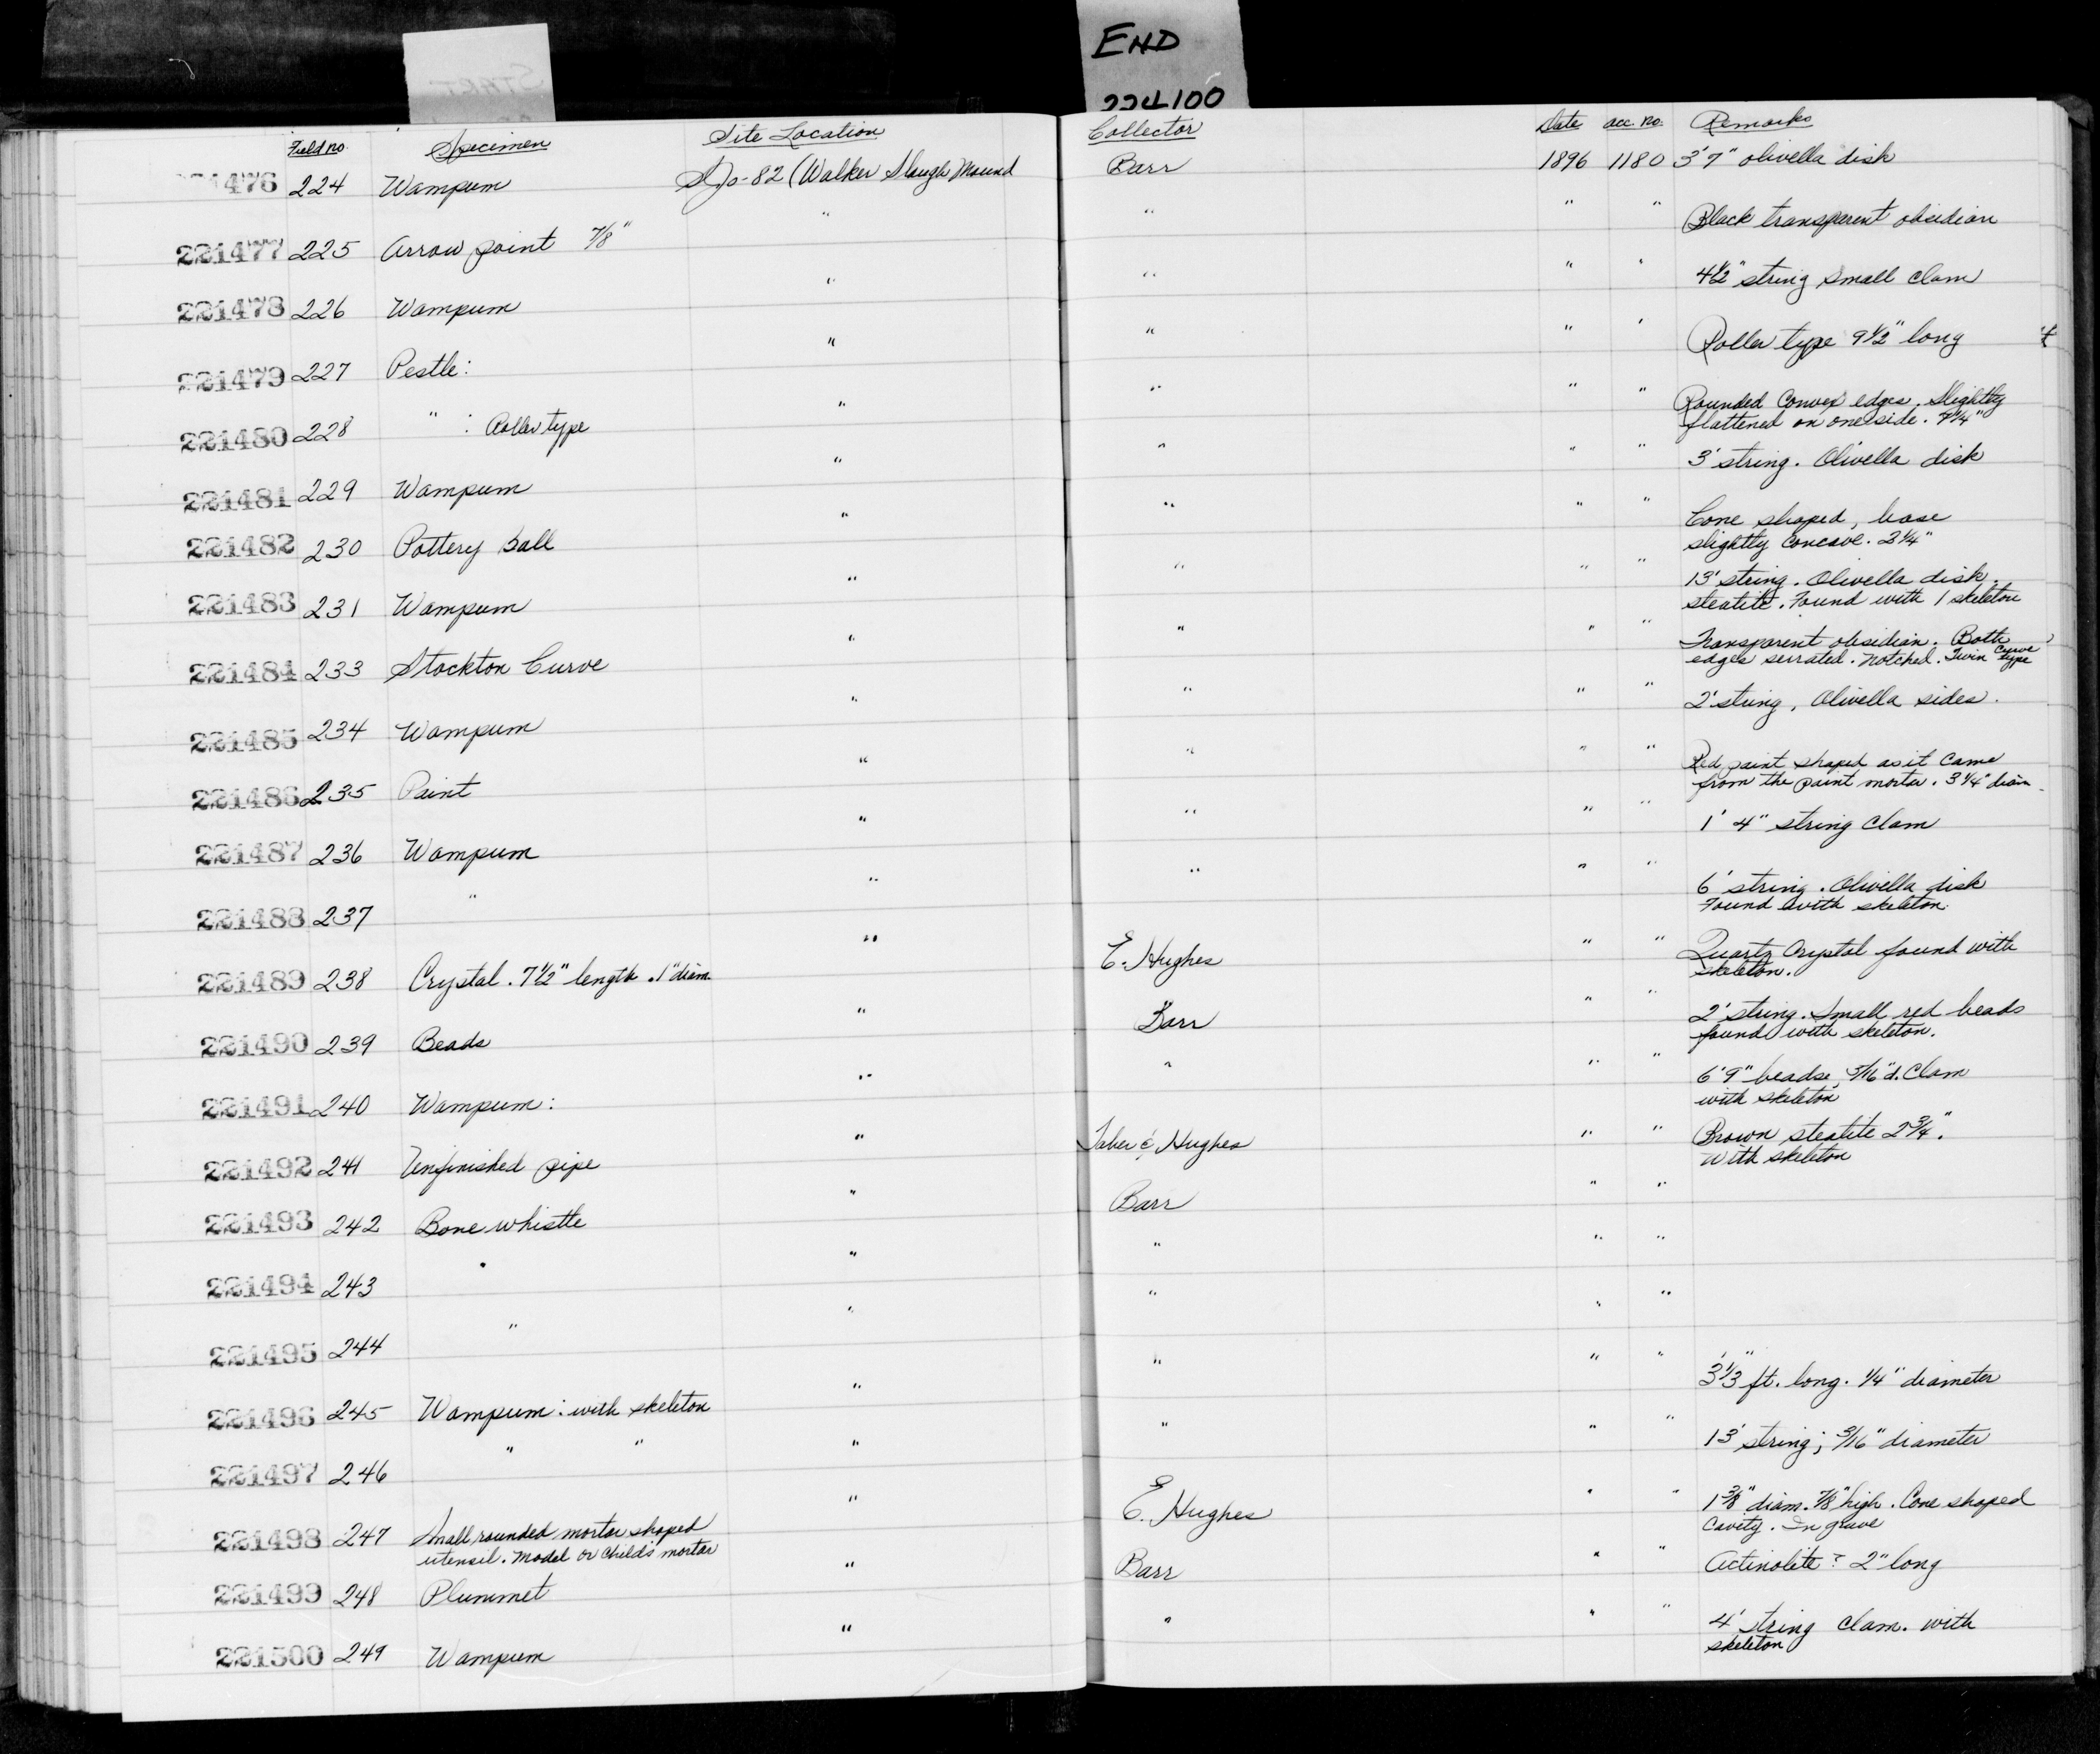 END
224100
START
Field no. Specimen Site Location Collector Date acc. no. Remarks
476 224 Wampum SJo-82 (Walker Slough Mound Barr 1896 1180 3'7" olivella disk
221477 225 Arrow point 7/8" " " " " Black transparent obsidian
221478 226 Wampum " " " " 4½" string small clam
221479 227 Pestle: " " " " Roller type 9½" long
221480 228 " : Roller type " " " " Rounded Convex edges. Slightly
flattened on one side. 7¼"
221481 229 Wampum " " " " 3' string. Olivella disk
221482 230 Pottery Ball " " " " Cone shaped, base
slightly concave. 2¼"
221483 231 Wampum " " " " 13' string. Olivella disk.
steatite. Found with 1 skeleton
221484 233 Stockton Curve " " " " Transparent obsidian. Both
edges serrated. Notched. Twin Curve type
221485 234 Wampum " " " " 2' string, Olivella sides.
221486 235 Paint " " " " Red paint shaped as it came
from the paint mortar. 3¼" diam.
221487 236 Wampum " " " " 1' 4" string clam
221488 237 " " " " " 6' string. Olivella disk
Found with skeleton.
221489 238 Crystal. 7½" length. 1" diam. " E. Hughes " " Quartz Crystal found with
skeleton.
221490 239 Beads " Barr " " 2' string. Small red beads
found with skeleton.
221491 240 Wampum: " " " " 6'9" beads, 5/16" d. Clam
with skeleton
221492 241 Unfinished pipe " Taber & Hughes " " Brown steatite 2¾".
With skeleton
221493 242 Bone whistle " Barr " "
221494 243 " " " " "
221495 244 " " " " "
221496 245 Wampum: with skeleton " " " " 3⅓ ft. long. ¼" diameter
221497 246 " " " " " " 13' string; 3/16" diameter
221498 247 Small rounded mortar shaped " E. Hughes " " 1⅜" diam. ⅞" high. Cone shaped
utensil. Model or Child's mortar cavity. In grave
221499 248 Plummet " Barr " " Actinolite? 2" long
221500 249 Wampum " " " " 4' string clam. with
skeleton